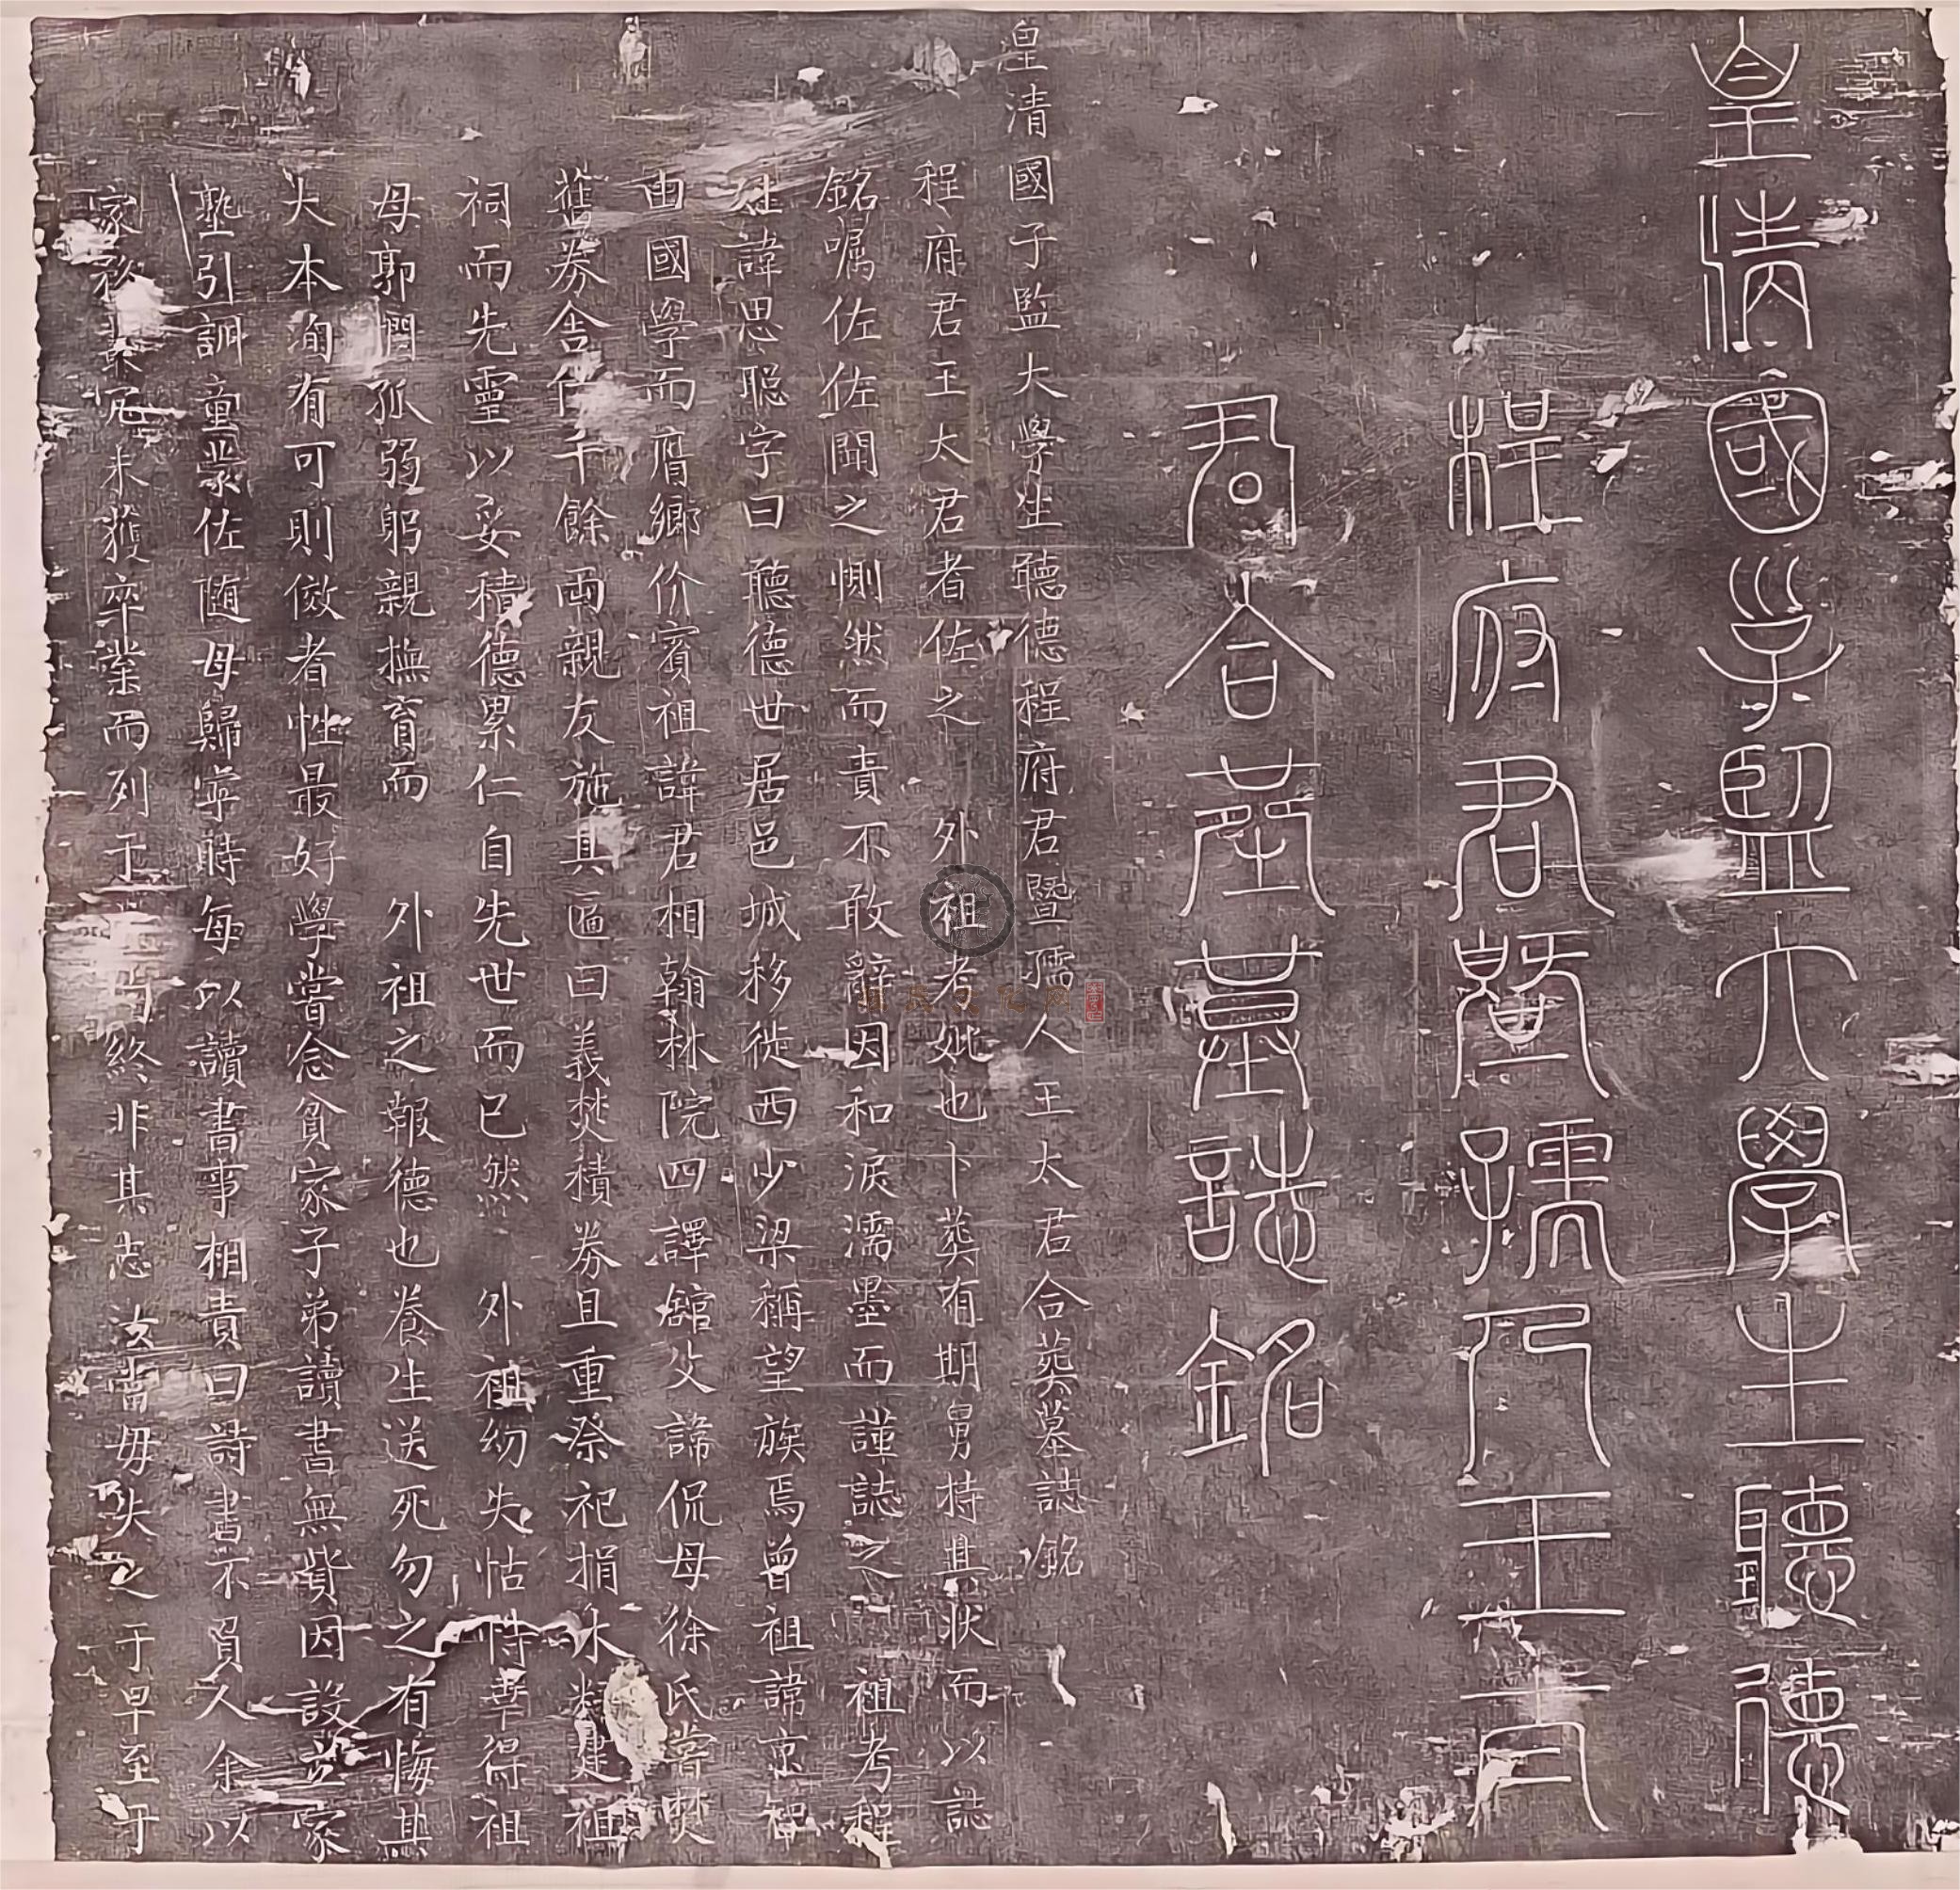 皇清國子監大學生聽德
程府君暨孺人王太
君合葬墓誌銘
皇清國子監大學生聽德程府君暨孺人王太君合葬墓誌銘
程府君王太君者佐之外祖考妣也卜葬有期舅持其狀而以誌
銘囑佐佐聞之惻然而責不敢辭因和淚濡墨而謹誌之祖考程
姓諱思聰字曰聽德世居邑城移徙西少梁稱望族焉曾祖諱京智
由國學而膺鄉价賓祖諱君相翰林院四譯館父諱侃母徐氏嘗焚
舊券舍仟千餘両親友施其匾曰義焚積券且重祭祀捐木數建祖
祠而先靈以妥積德累仁自先世而已然外祖幼失怙恃幸得祖
母郭門孤弱躬親撫育而外祖之報德也養生送死勿之有悔其
大本洵有可則傚者性最好學嘗念貧家子弟讀書無貲因設並家
塾引訓童蒙佐隨母歸寧時每以讀書事相責曰詩書不負人余以
家務未獲卒業而列于終非其志汝當毋失之于早至于